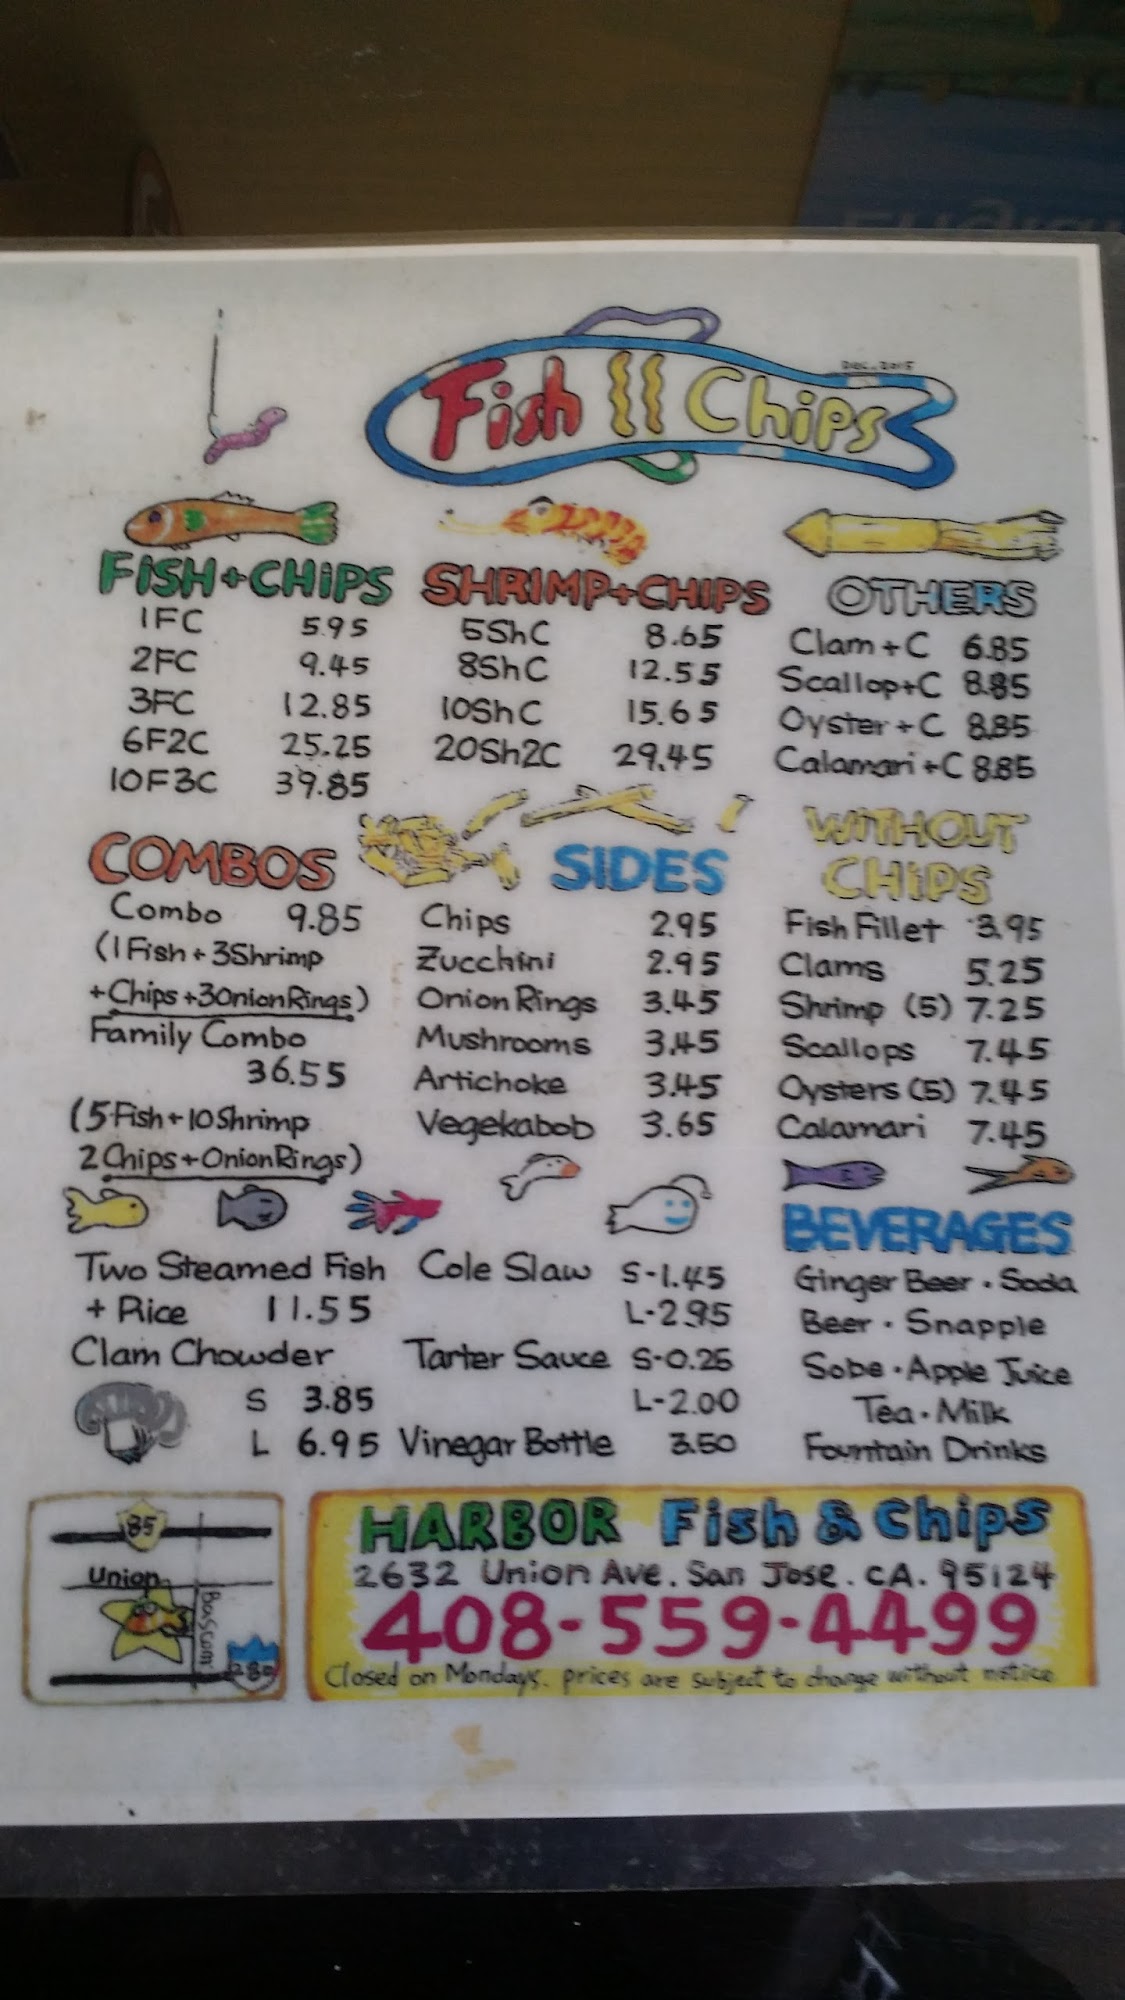 Dec. 2015
Fish Chips
FISH+CHIPS
1FC 5.95
2FC 9.45
3FC 12.85
6F2C 25.25
10F3C 39.85
SHRIMP+CHIPS
5ShC 8.65
8ShC 12.55
10ShC 15.65
20Sh2C 29.45
OTHERS
Clam+C 6.85
Scallop+C 8.85
Oyster+C 8.85
Calamari+C 8.85
COMBOS
Combo 9.85
(1Fish+3Shrimp
+Chips+3OnionRings)
Family Combo
36.55
(5Fish+10Shrimp
2Chips+OnionRings)
SIDES
Chips 2.95
Zucchini 2.95
Onion Rings 3.45
Mushrooms 3.45
Artichoke 3.45
Vegekabob 3.65
WITHOUT
CHIPS
Fish Fillet 3.95
Clams 5.25
Shrimp (5) 7.25
Scallops 7.45
Oysters (5) 7.45
Calamari 7.45
Two Steamed Fish
+ Rice 11.55
Clam Chowder
S 3.85
L 6.95
Cole Slaw S-1.45
L-2.95
Tarter Sauce S-0.25
L-2.00
Vinegar Bottle 3.50
BEVERAGES
Ginger Beer . Soda
Beer . Snapple
Sobe . Apple Juice
Tea . Milk
Fountain Drinks
85
Union
Bascom
285
HARBOR Fish & Chips
2632 Union Ave. San Jose. CA. 95124
408-559-4499
Closed on Mondays. prices are subject to change without notice